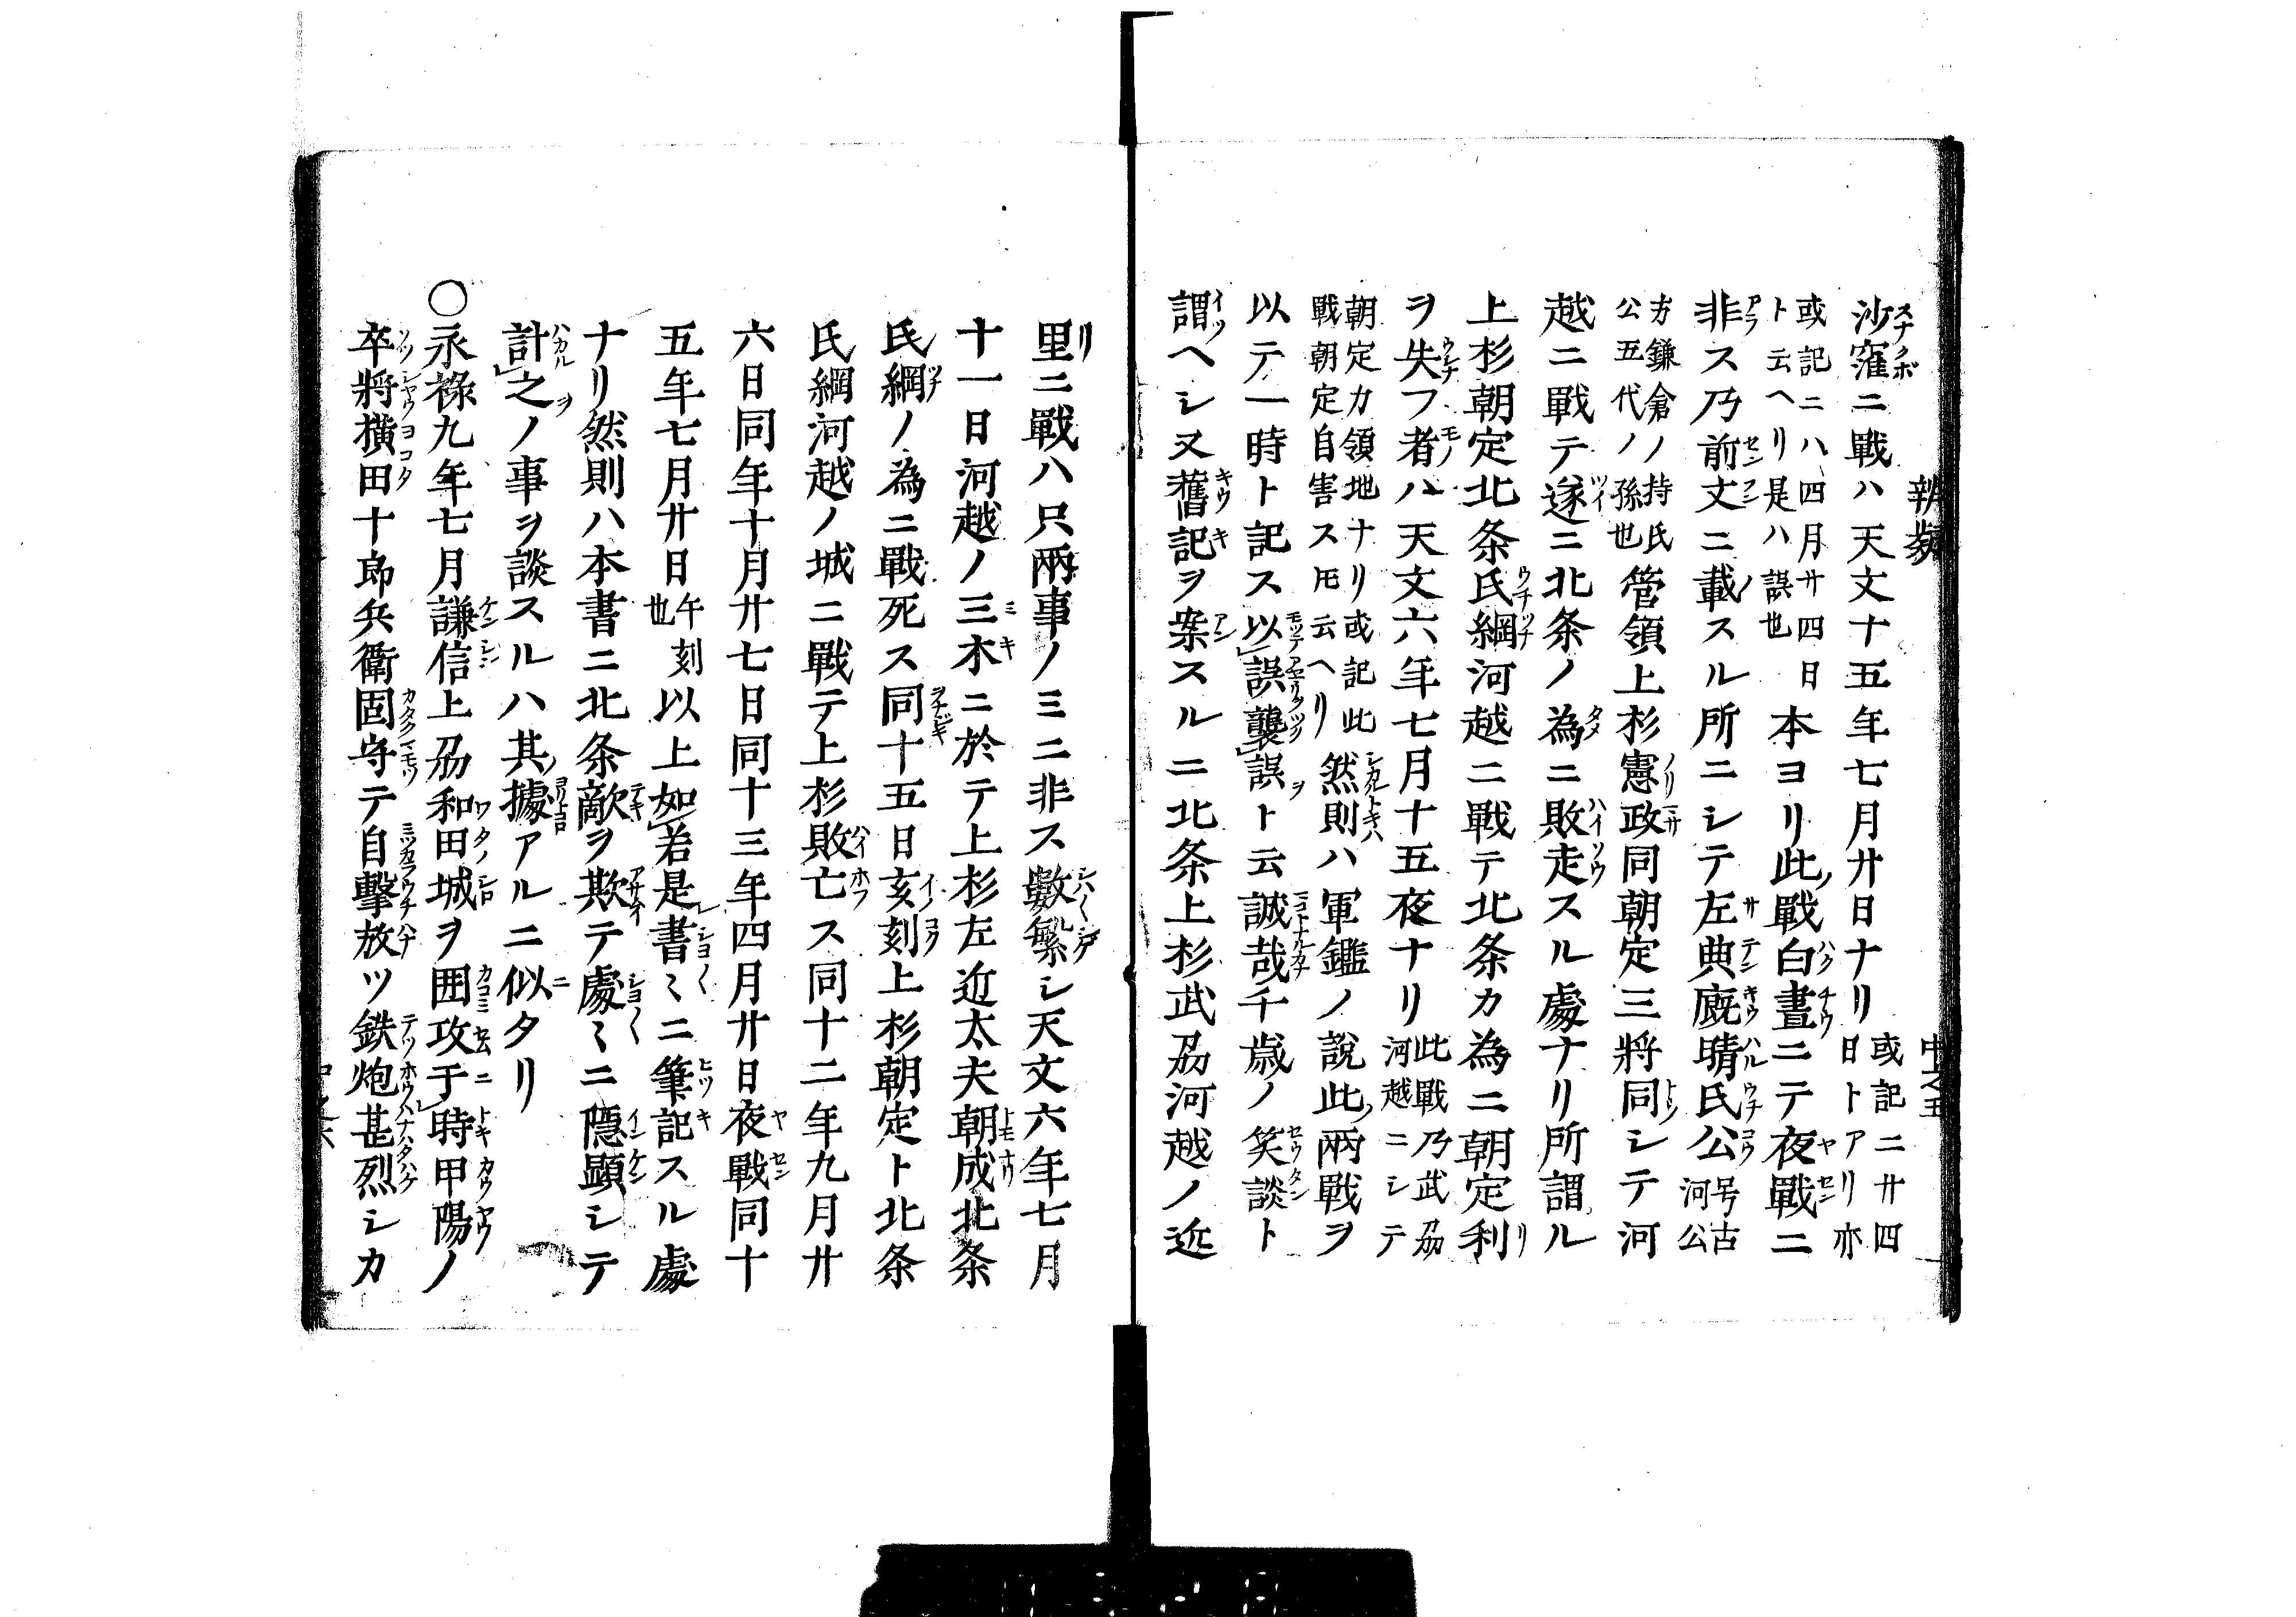 沙窪ニ戰ハ天文十五年七月廿日ナリ或記ニ廿四日トアリ亦
或記ニハ四月廿四日ト云ヘリ是ハ誤也本ヨリ此戰白晝ニテ夜戰ニ
非ス乃前文ニ載スル所ニシテ左典廐晴氏公号古河公
方鎌倉ノ持氏公五代ノ孫也管領上杉憲政同朝定三將同シテ河
越ニ戰テ遂ニ北条ノ為ニ敗走スル處ナリ所謂ル
上杉朝定北条氏綱河越ニ戰テ北条カ為ニ朝定利
ヲ失フ者ハ天文六年七月十五夜ナリ此戰乃武刕河越ニシテ
朝定カ領地ナリ或記此戰朝定自害スト云ヘリ然則ハ軍鑑ノ說此兩戰ヲ
以テ一時ト記ス以誤襲誤ト云誠哉千歳ノ笑談ト
謂ヘシ又舊記ヲ案スルニ北条上杉武刕河越ノ近
里ニ戰ハ只兩事ノミニ非ス數繁シ天文六年七月
十一日河越ノ三木ニ於テ上杉左近太夫朝成北条
氏綱ノ為ニ戰死ス同十五日亥刻上杉朝定ト北条
氏綱河越ノ城ニ戰テ上杉敗亡ス同十二年九月廿
六日同年十月廿七日同十三年四月廿日夜戰同十
五年七月廿日午刻也以上如若是書〻ニ筆記スル處
ナリ然則ハ本書ニ北条敵ヲ欺テ處〻ニ隱顯シテ
計之ノ事ヲ談スルハ其據アルニ似タリ
○永祿九年七月謙信上刕和田城ヲ囲攻于時甲陽ノ
卒將橫田十郎兵衛固守テ自擊放ツ鉄炮甚烈シカ